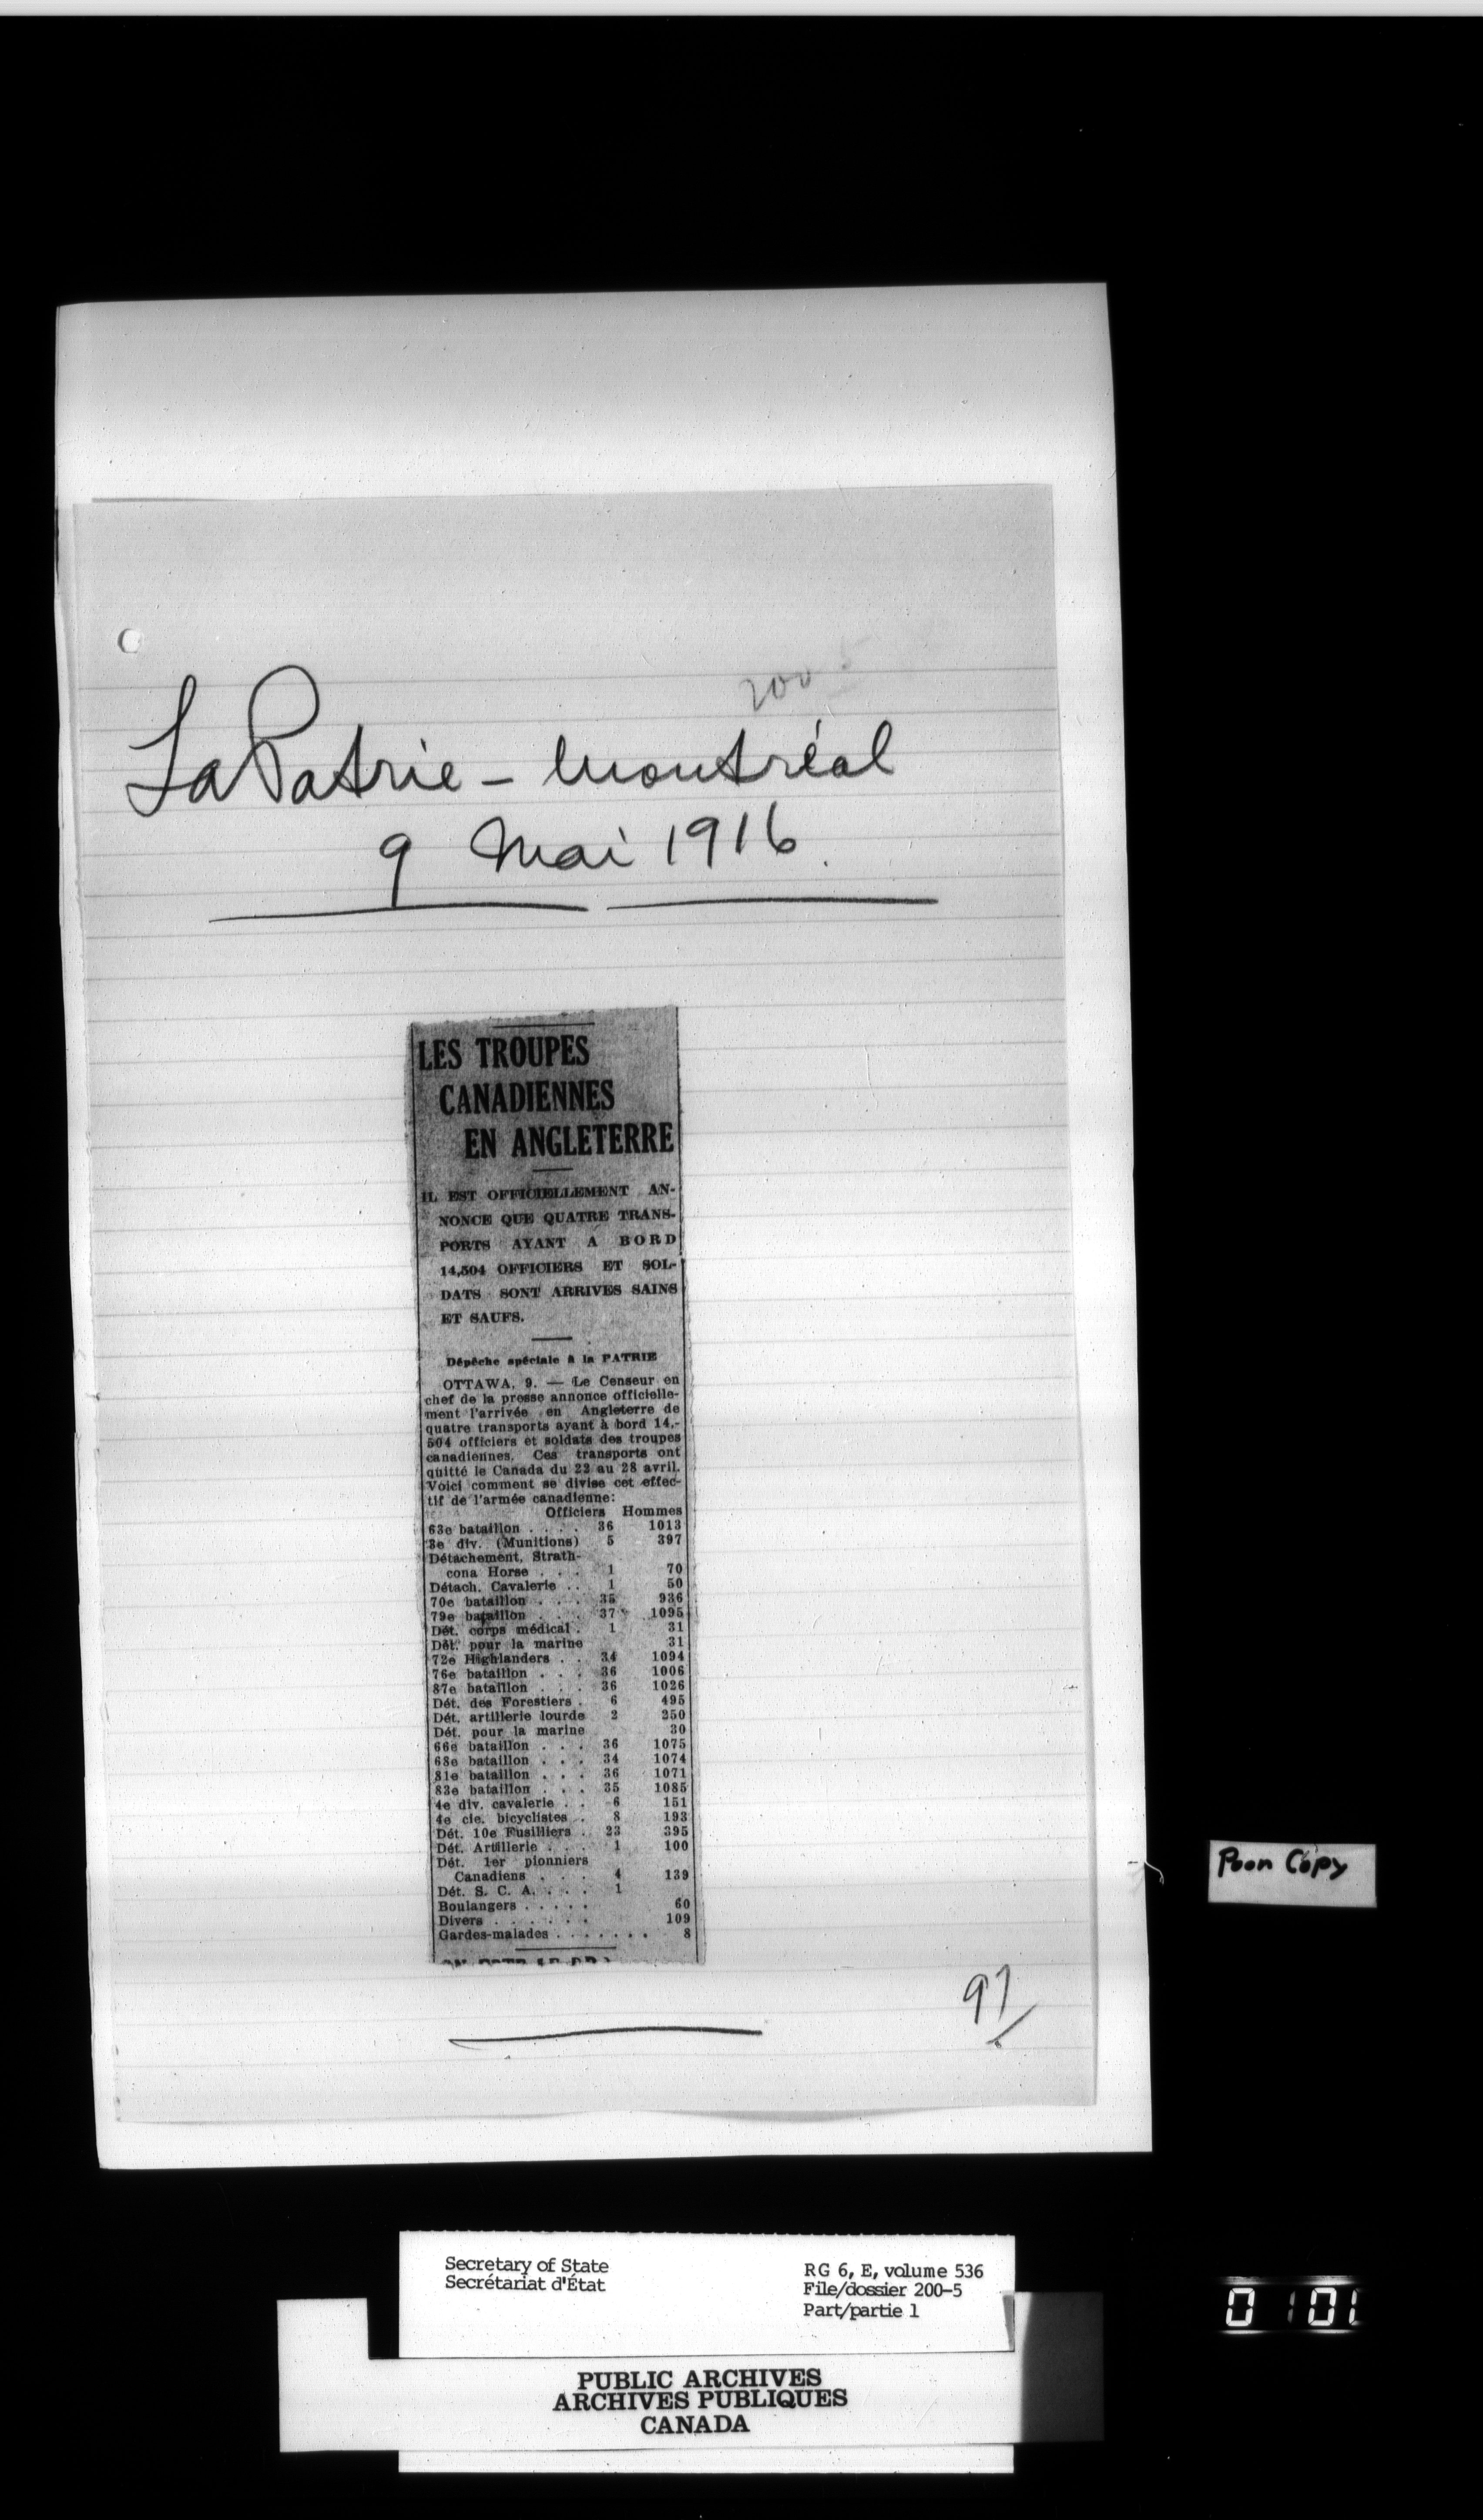 200-5
La Patrie - Montréal
9 Mai 1916.
LES TROUPES
CANADIENNES
EN ANGLETERRE
IL EST OFFICIELLEMENT AN-
NONCE QUE QUATRE TRANS-
PORTS AYANT A BORD
14,504 OFFICIERS ET SOL-
DATS SONT ARRIVES SAINS
ET SAUFS.
Dépêche spéciale à la PATRIE
OTTAWA, 9. — Le Censeur en
chef de la presse annonce officielle-
ment l'arrivée en Angleterre de
quatre transports ayant à bord 14,-
504 officiers et soldats des troupes
canadiennes. Ces transports ont
quitté le Canada du 22 au 28 avril.
Voici comment se divise cet effec-
tif de l'armée canadienne:
Officiers Hommes
63e bataillon . . . . 36 1013
3e div. (Munitions) 5 397
Détachement, Strath-
cona Horse . . . 1 70
Détach. Cavalerie . . 1 50
70e bataillon . . . 35 936
79e bataillon . . . 37 1095
Dét. corps médical . 1 31
Dét. pour la marine 31
72e Highlanders . . 34 1094
76e bataillon . . . 36 1006
87e bataillon . . . 36 1026
Dét. des Forestiers . 6 495
Dét. artillerie lourde 2 250
Dét. pour la marine 30
66e bataillon . . . 36 1075
68e bataillon . . . 34 1074
81e bataillon . . . 36 1071
83e bataillon . . . 35 1085
4e div. cavalerie . . 6 151
4e cie. bicyclistes . 8 193
Dét. 10e Fusilliers . 23 395
Dét. Artillerie . . . 1 100
Dét. 1er pionniers
Canadiens . . . 4 139
Dét. S. C. A. . . . 1
Boulangers . . . . . 60
Divers . . . . . . 109
Gardes-malades . . . . . . . 8
97
Poor Copy
Secretary of State
Secrétariat d'État
RG 6, E, volume 536
File/dossier 200-5
Part/partie 1
PUBLIC ARCHIVES
ARCHIVES PUBLIQUES
CANADA
0101